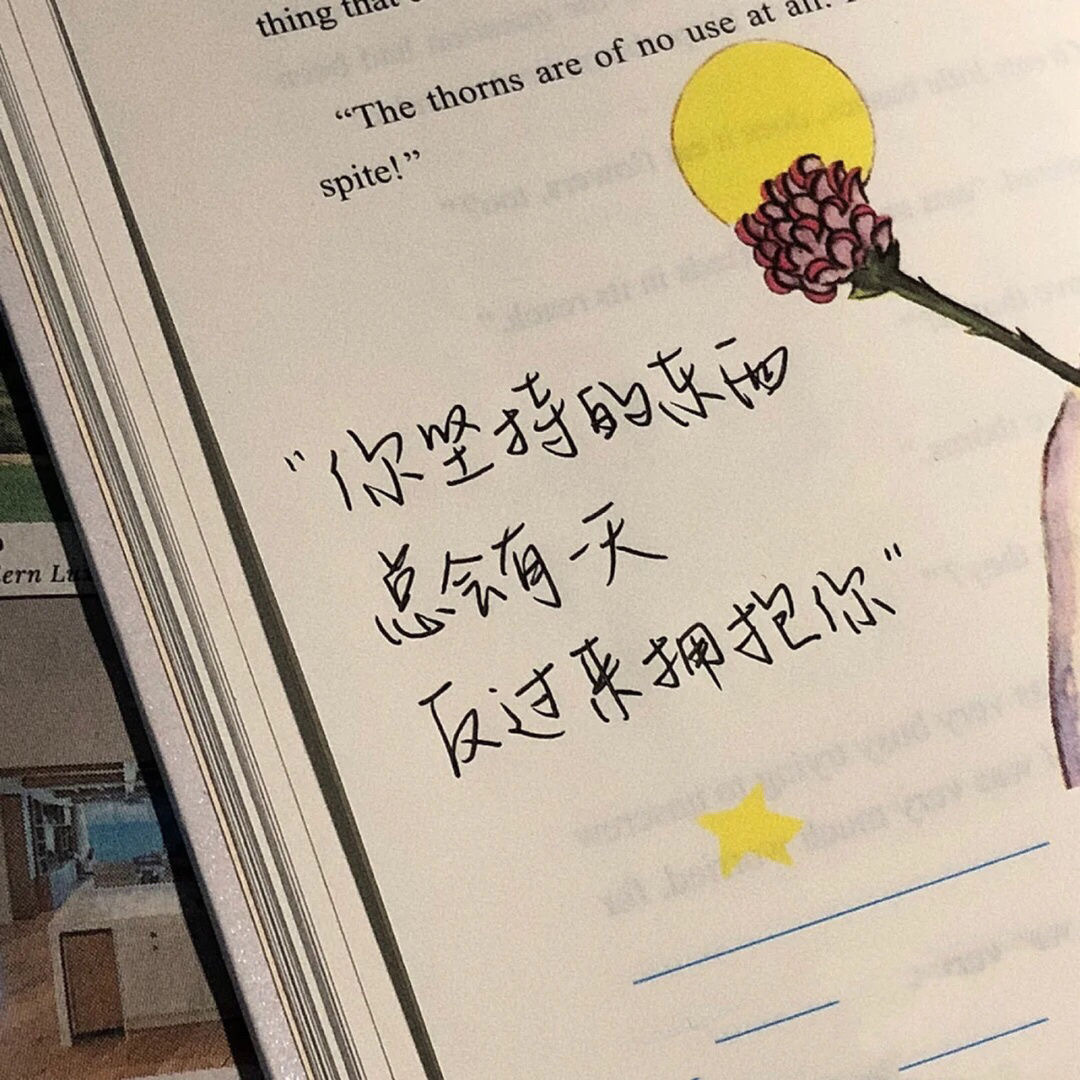 thing that
"The thorns are of no use at all.
spite!"
"你坚持的东西
总会有一天
反过来拥抱你"
ern Lu